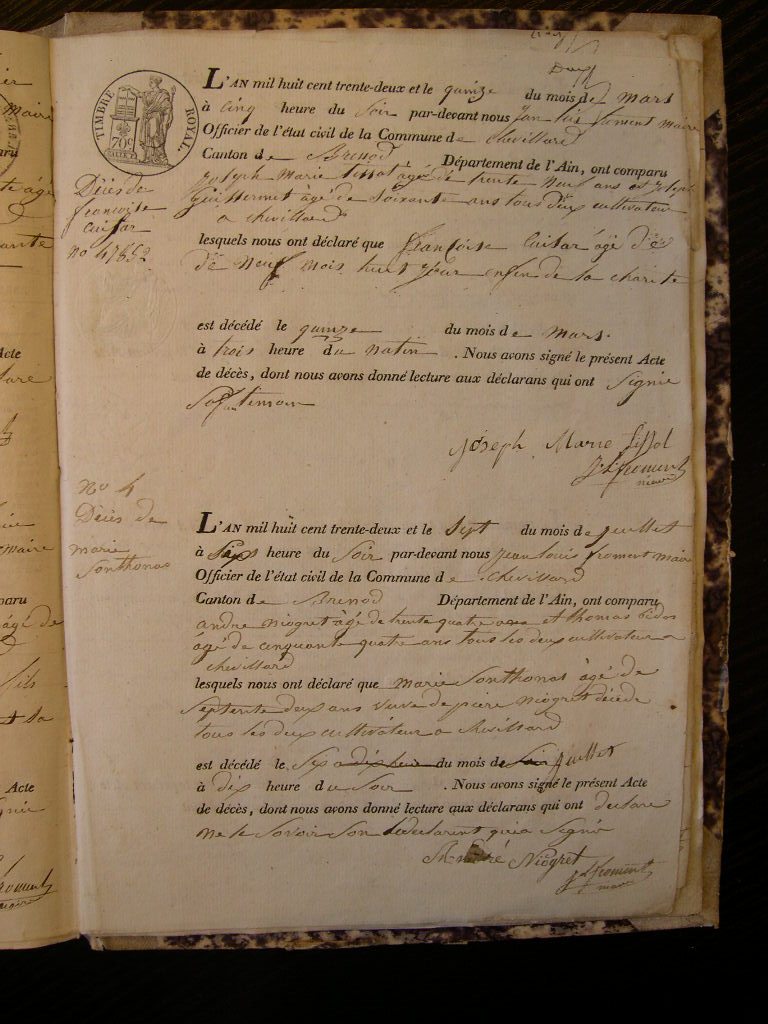 TIMBRE ROYAL.
70c
L'AN mil huit cent trente-deux et le quinze du mois de mars
à cinq heure du Soir par-devant nous jan luis froment maire
Officier de l'état civil de la Commune de chevillard
Canton de Brenod Département de l'Ain, ont comparu
joseph marie lissol âgé de trente neuf ans et
guillermet âgé de Soixante ans tous deux cultivateur
a chevillard
lesquels nous ont déclaré que françoise âgé
de neuf mois huit jour enfen de la charite
Déiès de
françoise
no
est décédé le quinze du mois de mars.
à trois heure du matin . Nous avons signé le présent Acte
de décès, dont nous avons donné lecture aux déclarans qui ont Signie
Joseph Marie lissol
J L froment
maire
no 4
Déiès de
marie
Sonthonas
L'AN mil huit cent trente-deux et le Sept du mois de juillet
à Six heure du Soir par-devant nous jean louis froment maire
Officier de l'état civil de la Commune de chevillard
Canton de Brenod Département de l'Ain, ont comparu
andre niogret âgé de trente quatre ans et thomas
âgé de cinquante quatre ans tous les deux cultivateur a
chevillard
lesquels nous ont déclaré que marie Sonthonas âgé de
Septente deux ans veuve de piere niogret décéde
tous les deux cultivateur a chevillard
est décédé le Six du mois de juillet
à dix heure du Soir . Nous avons signé le présent Acte
de décès, dont nous avons donné lecture aux déclarans qui ont declare
ne le Savoir Son declarent qui a Signié
André Niogret
J L froment
maire